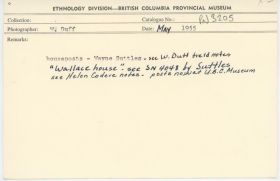 ETHNOLOGY DIVISION—BRITISH COLUMBIA PROVINCIAL MUSEUM
Collection: Catalogue No.: PN 3205
Photographer: W Duff Date: May 1955
Remarks:
houseposts - Wayne Suttles - see W. Duff field notes
"Wallace house" - see SN 4048 by Suttles
see Helen Codere notes - posts now at U.B.C. Museum